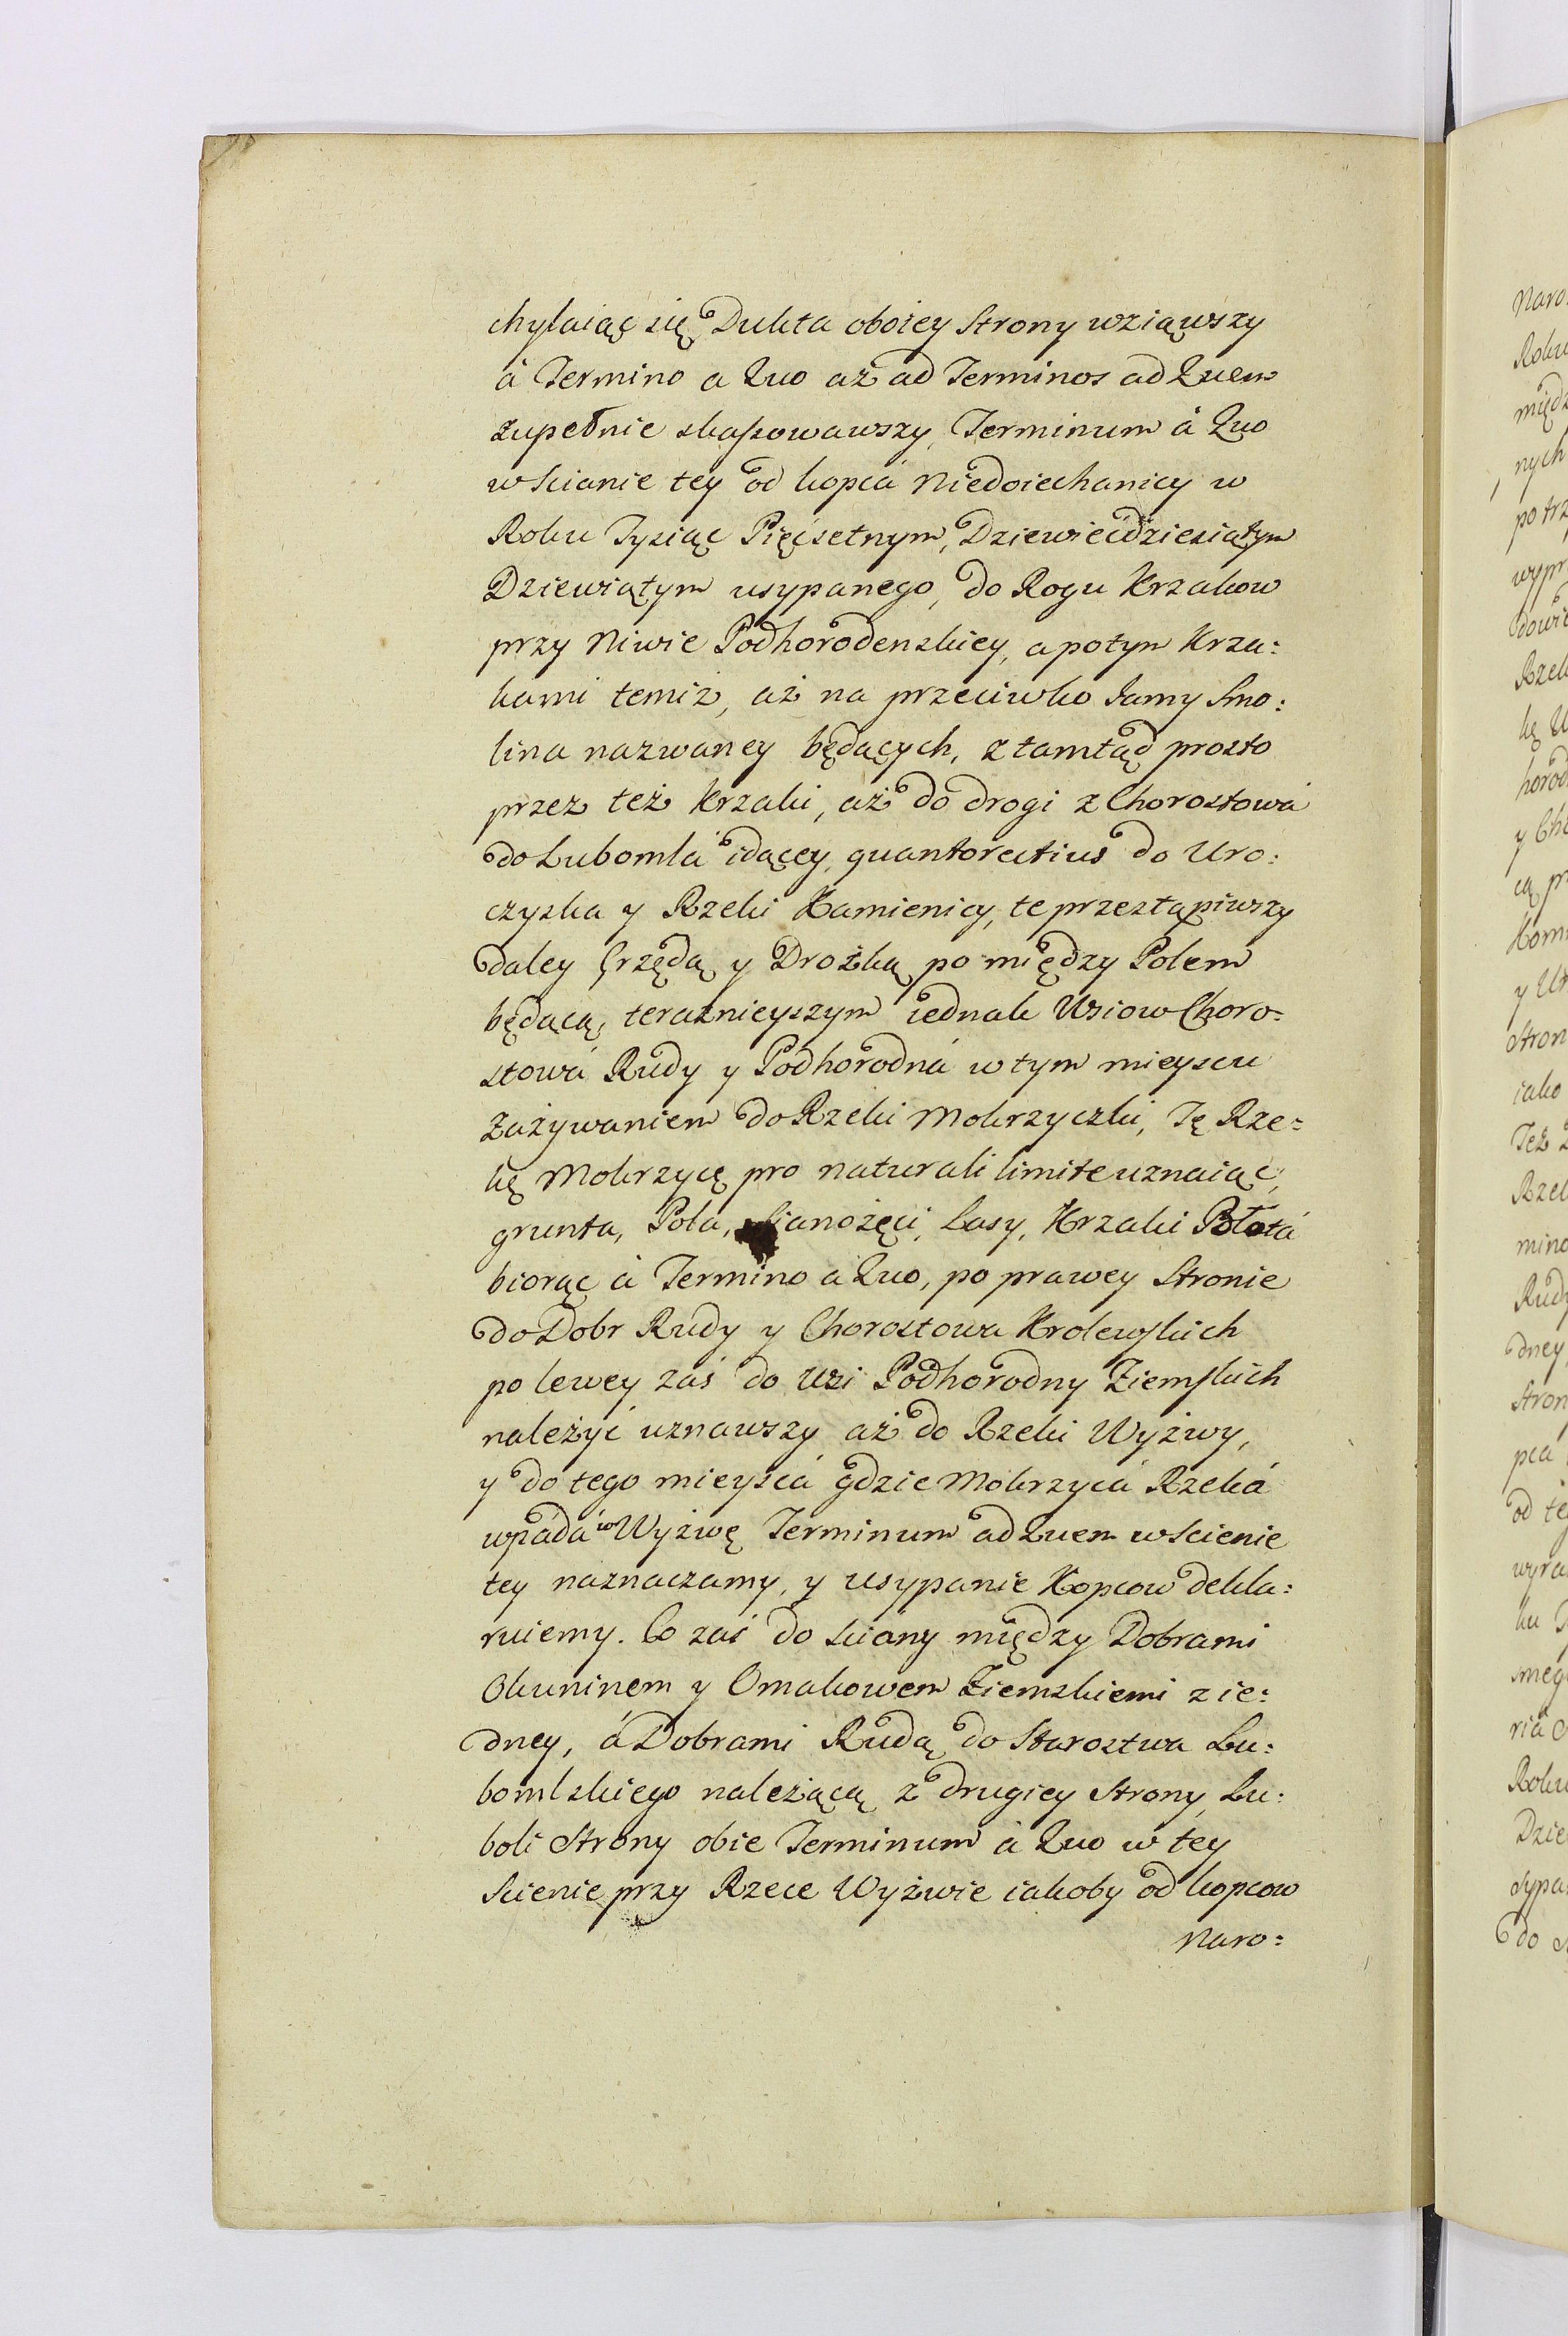 chylaiąc się Dukta oboiey Strony wziąwszy
á Termino a Quo aż ad Terminos ad Quem
zupełnie skassowawszy, Terminum á Quo
w scianie tey od kopca Niedoiechanicy w
Roku Tysiąc Pięcsetnym, Dziewiecdziesiątym
Dziewiątym usypanego, do Rogu Krzakow
przy Niwie Podhorodenskiey, a potym Krza:
kami temiż, aż na przeciwko Jamy Smo:
lina nazwaney będących, ztamtąd prosto
przez też krzaki, aż do drogi z Chorostowá
do Lubomlá idącey, quanto rectius do Uro:
czyska y Rzeki Kamienicy, te przestąpiwszy
daley Grzędą y Drożką po między Polem
będącą, teraznieyszym iednak Wsiow Choro:
stowá Rudy y Podhorodná w tym mieyscu
Zażywaniem do Rzeki Mokrzyczki, Tę Rze:
kę Mokrzycę pro naturali limite uznaiąc,
grunta, Pola, Sianożęci, Lasy, Krzaki Błotá
biorąc á Termino a Quo, po prawey Stronie
do Dobr Rudy y Chorostowa Krolewskich
po lewey zaś do Wsi Podhorodny Ziemskich
należyć uznawszy aż do Rzeki Wyżwy,
y do tego mieyscá gdzie Mokrzycá Rzeká
wpádá w Wyżwę Terminum ad Quem w scienie
tey naznaczamy, y usypanie Kopcow dekla:
ruiemy. Co zaś do sciany między Dobrami
Okuninem y Omakowem Ziemskiemi z ie:
dney, á Dobrami Rudą do Starostwa Lu:
bomlskiego należącą z drugiey Strony, Lu:
boli Strony obie Terminum á Quo w tey
Scienie przy Rzece Wyżwie iakoby od kopcow
Naro: